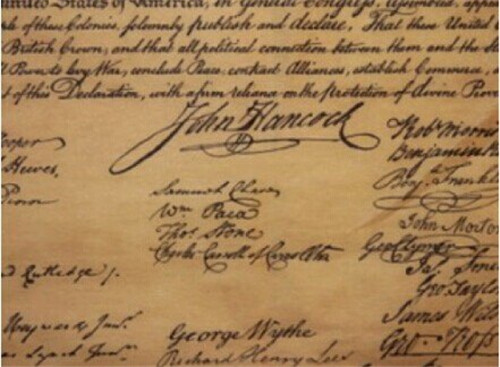 United States of America, in General Congress, Assembled, app
of these Colonies, solemnly publish and declare, That these United
British Crown, and that all political connection between them and the
Power to levy War, conclude Peace, contract Alliances, establish Commerce,
of this Declaration, with a firm reliance on the Protection of divine Prov
John Hancock
Hooper
Hewes,
Penn
Rutledge /.
Heyward Junr.
Lynch Junr.
Samuel Chase
Wm. Paca
Thos. Stone
Charles Carroll of Carrollton
George Wythe
Richard Henry Lee
Robt Morris
Benjamin R
Benj. Franklin
John Morton
Geo Clymer
Jas. Smi
Geo. Tayl
James Wil
Geo. Ross